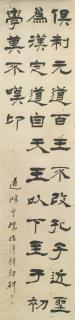 俱制元道百王不改孔子近聖
為漢定道自天王以下至于初
學莫不嘆卬